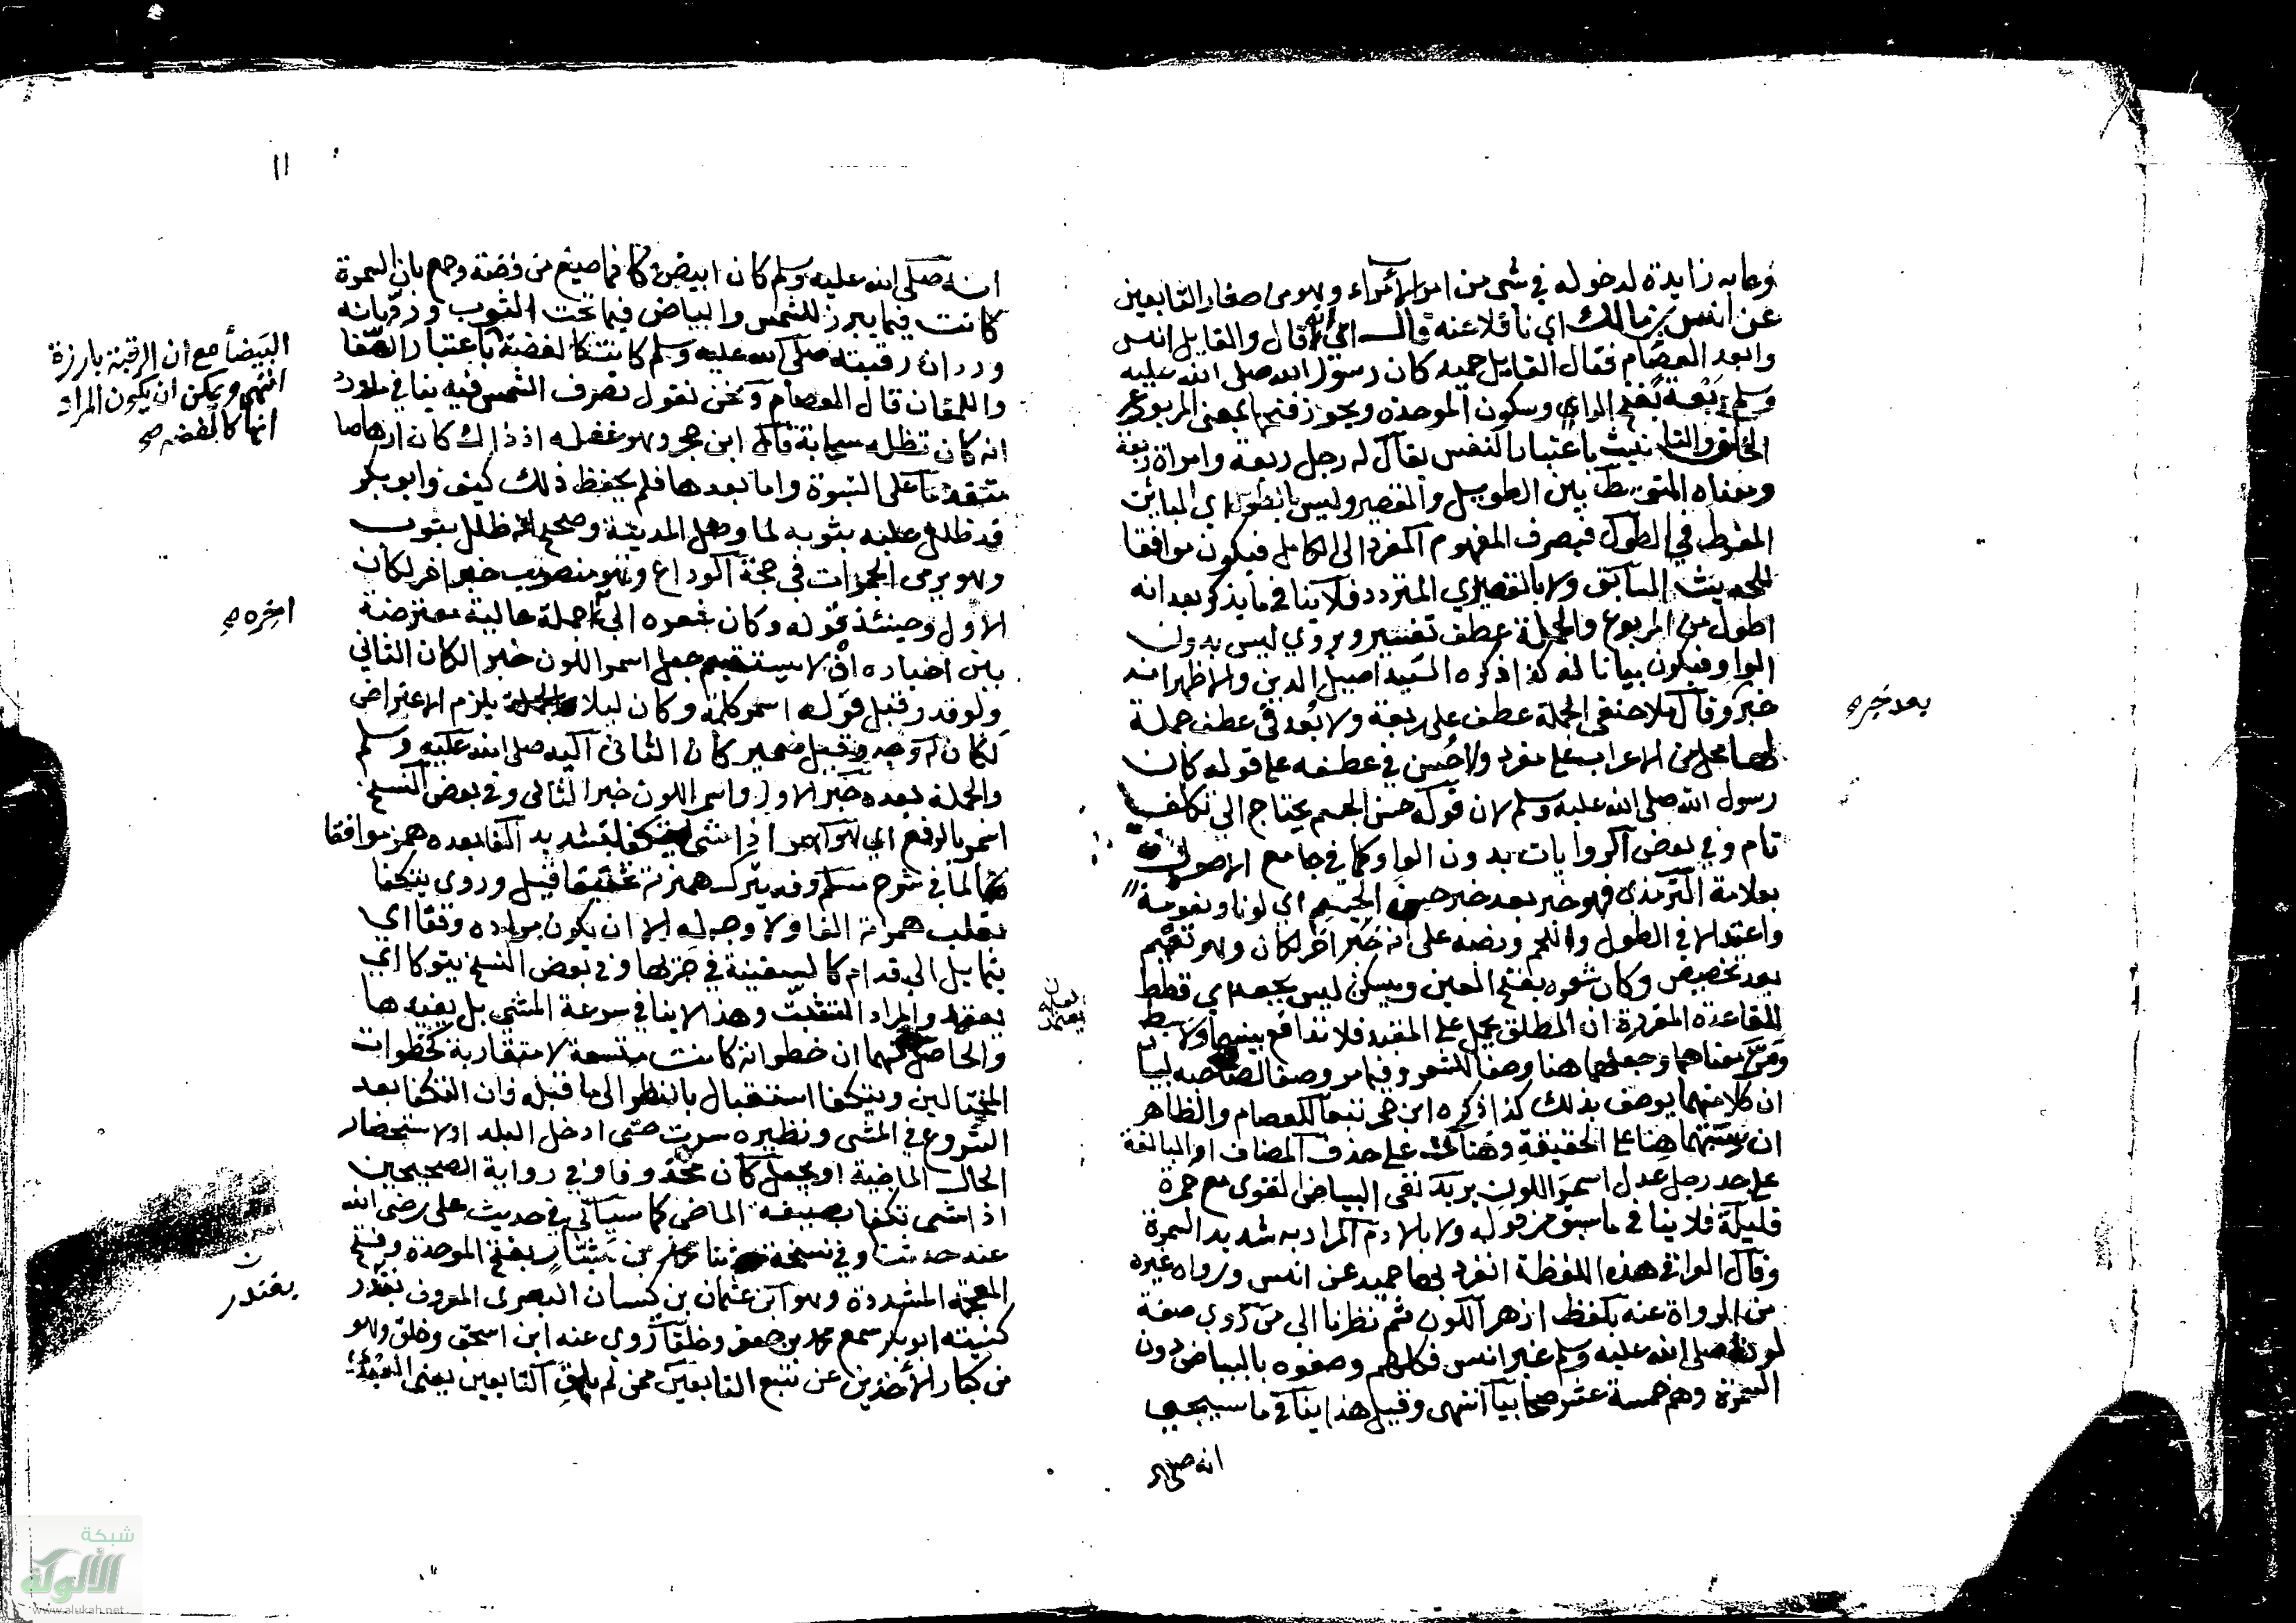 وعابه زايدة لدخوله في شي من امر الأمراء وهو من صغار التابعين
عن انس بن مالك اي ناقلا عنه قال اي انه قال والقايل انس
وابعد العصام فقال القايل حميد كان رسول الله صلى الله عليه
وسلم ربعة بفتح الراي وسكون الموحدة ويجوز فتحها بمعنى المربوع
الخلق والتانيث باعتبار النفس يقال له رجل ربعة وامراة ربعة
ومعناه المتوسط بين الطويل والقصير وليس بالطويل اي البائن
المفرط في الطول فيصرف المفهوم المفرد الى الكامل فيكون موافقا
للحديث السابق ولا بالقصير اي المتردد فلا ينافي ما يذكر بعد انه
اطول من المربوع والجملة عطف تفسير ويروي ليس بدون
الواو فيكون بيانا له كذا ذكره السيد اصيل الدين والاظهر انه
خبر وقال ملا حنفي الجملة عطف على ربعة ولا بُعد في عطف جملة
لها محل من الاعراب على مفرد ولا حُسن في عطفه على قوله كان
رسول الله صلى الله عليه وسلم لان قوله حسن الجسم يحتاج الى تكلف
تام وفي بعض الروايات بدون الواو كما في جامع الاصول
بعلامة الترمذي فهو خبر بعد خبر حسن الجسم اي لونا ونعومة
واعتدالا في الطول واللحم ونصبه على انه خبر اخر لكان وهو تعميم
بعد تخصيص وكان شعره بفتح العين ويسكن ليس بجعد اي قطط
للقاعدة المقررة ان المطلق يحمل على المقيد فلا تدافع بينهما ولا سبط
ومرّ معناهما وجعلهما هنا وصفا للشعر وفيما مر وصفا لصاحبه لبيان
ان كلا منهما يوصف بذلك كذا ذكره ابن حجر تبعا للعصام والظاهر
ان نسبتهما هنا على الحقيقة وهناك على حذف المضاف او المبالغة
على حد رجل عدل اسمر اللون يريد نفي البياض القوي مع حمرة
قليلة فلا ينافي ما سبق من قوله ولا بالادم المراد به شديد السمرة
وقال العراقي هذه اللفظة انفرد بها حميد عن انس ورواه غيره
من الرواة عنه بلفظ ازهر اللون ثم نظرنا الى من روي صفة
لونه صلى الله عليه وسلم غير انس فكلهم وصفوه بالبياض دون
السمرة وهم خمسة عشر صحابيا انتهى وقيل هذا ينافي ما سيجي
انه صلى
بعد خبر صح
١١
انه صلى الله عليه وسلم كان ابيض كانما صيغ من فضة وجمع بان السمرة
كانت فيما يبرز للشمس والبياض فيما تحت الثوب ورد بانه
ورد ان رقبته صلى الله عليه وسلم كانت كالفضة باعتبار الصفا
واللمعان قال العصام ونحن نقول تصرف الشمس فيه ينافي ما ورد
انه كان تظله سحابة قال ابن حجر وهو غفلة اذ ذاك كان ارهاصا
متقدما على النبوة واما بعدها فلم يحفظ ذلك كيف وابو بكر
قد ظلل عليه بثوبه لما وصل المدينة وصح انه ظلل بثوب
وهو يرمي الجمرات في حجة الوداع وهو منصوب خبر اخر لكان
الاول وحينئذ قوله وكان شعره الى جملة حالية معترضة
بين اخباره اذ لا يستقيم جعل اسمر اللون خبر الكان الثاني
ولو قدر قبل قوله اسمر كلمة وكان ليلا يلزم الاعتراض
لكان له وجه وقيل ضمير كان الثاني اليه صلى الله عليه وسلم
والجملة بعده خبر الاول واسمر اللون خبر الثاني وفي بعض النسخ
اسمر بالرفع اي هو اسمر اذا مشى يتكفأ بتشديد الفا بعده همز موافقا
لما في شرح مسلم وقد يترك همزته تخفيفا قيل وروي يتكفا
بقلب همزته الفا ولا وجه له الا ان يكون مراده وقفا اي
يتمايل الى قدام كالسفينة في جريها وفي بعض النسخ يتوكا اي
يعتمد والمراد التثبت وهذا لا ينافي سرعة المشي بل يؤيدها
والحاصل منهما ان خطواته كانت متسعة لا متقاربة كخطوات
المختالين ويتكفا استقبال بالنظر الى ما قبله فان التكفا بعد
الشروع في المشي ونظيره سرت حتى ادخل البلد او لاستحضار
الحال الماضية او يجعل كان محذوفا وفي رواية الصحيحين
اذا مشى تكفا بصيغة الماضي كما سياتي في حديث علي رضي الله
عنه حدثنا وفي نسخة ثنا محمد بن بشّار بفتح الموحدة وفتح
المعجمة المشددة وهو ابن عثمان بن كيسان البصري المعروف ببندار
كنيته ابو بكر سمع محمد بن جعفر وخلقا روى عنه ابن اسحق وخلق وهو
من كبار الأخذين عن تبع التابعين ممن لم يلق التابعين يعني
البيضا مع ان الرقبة بارزة
انتهى ويمكن ان يكون المراد
انها كالفضة صح
اخره صح